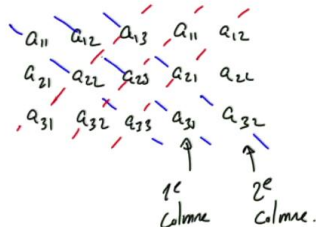 a11 a12 a13 a11 a12
a21 a22 a23 a21 a22
a31 a32 a33 a31 a32
1e 2e
colonne colonne.